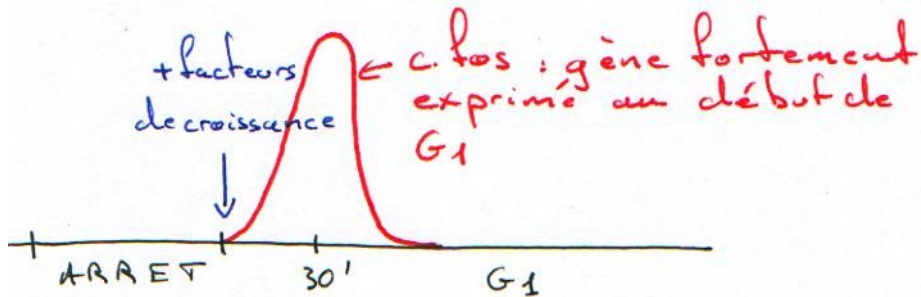 + facteurs
de croissance
c. fos : gène fortement
exprimé au début de
G1
ARRET
30'
G1